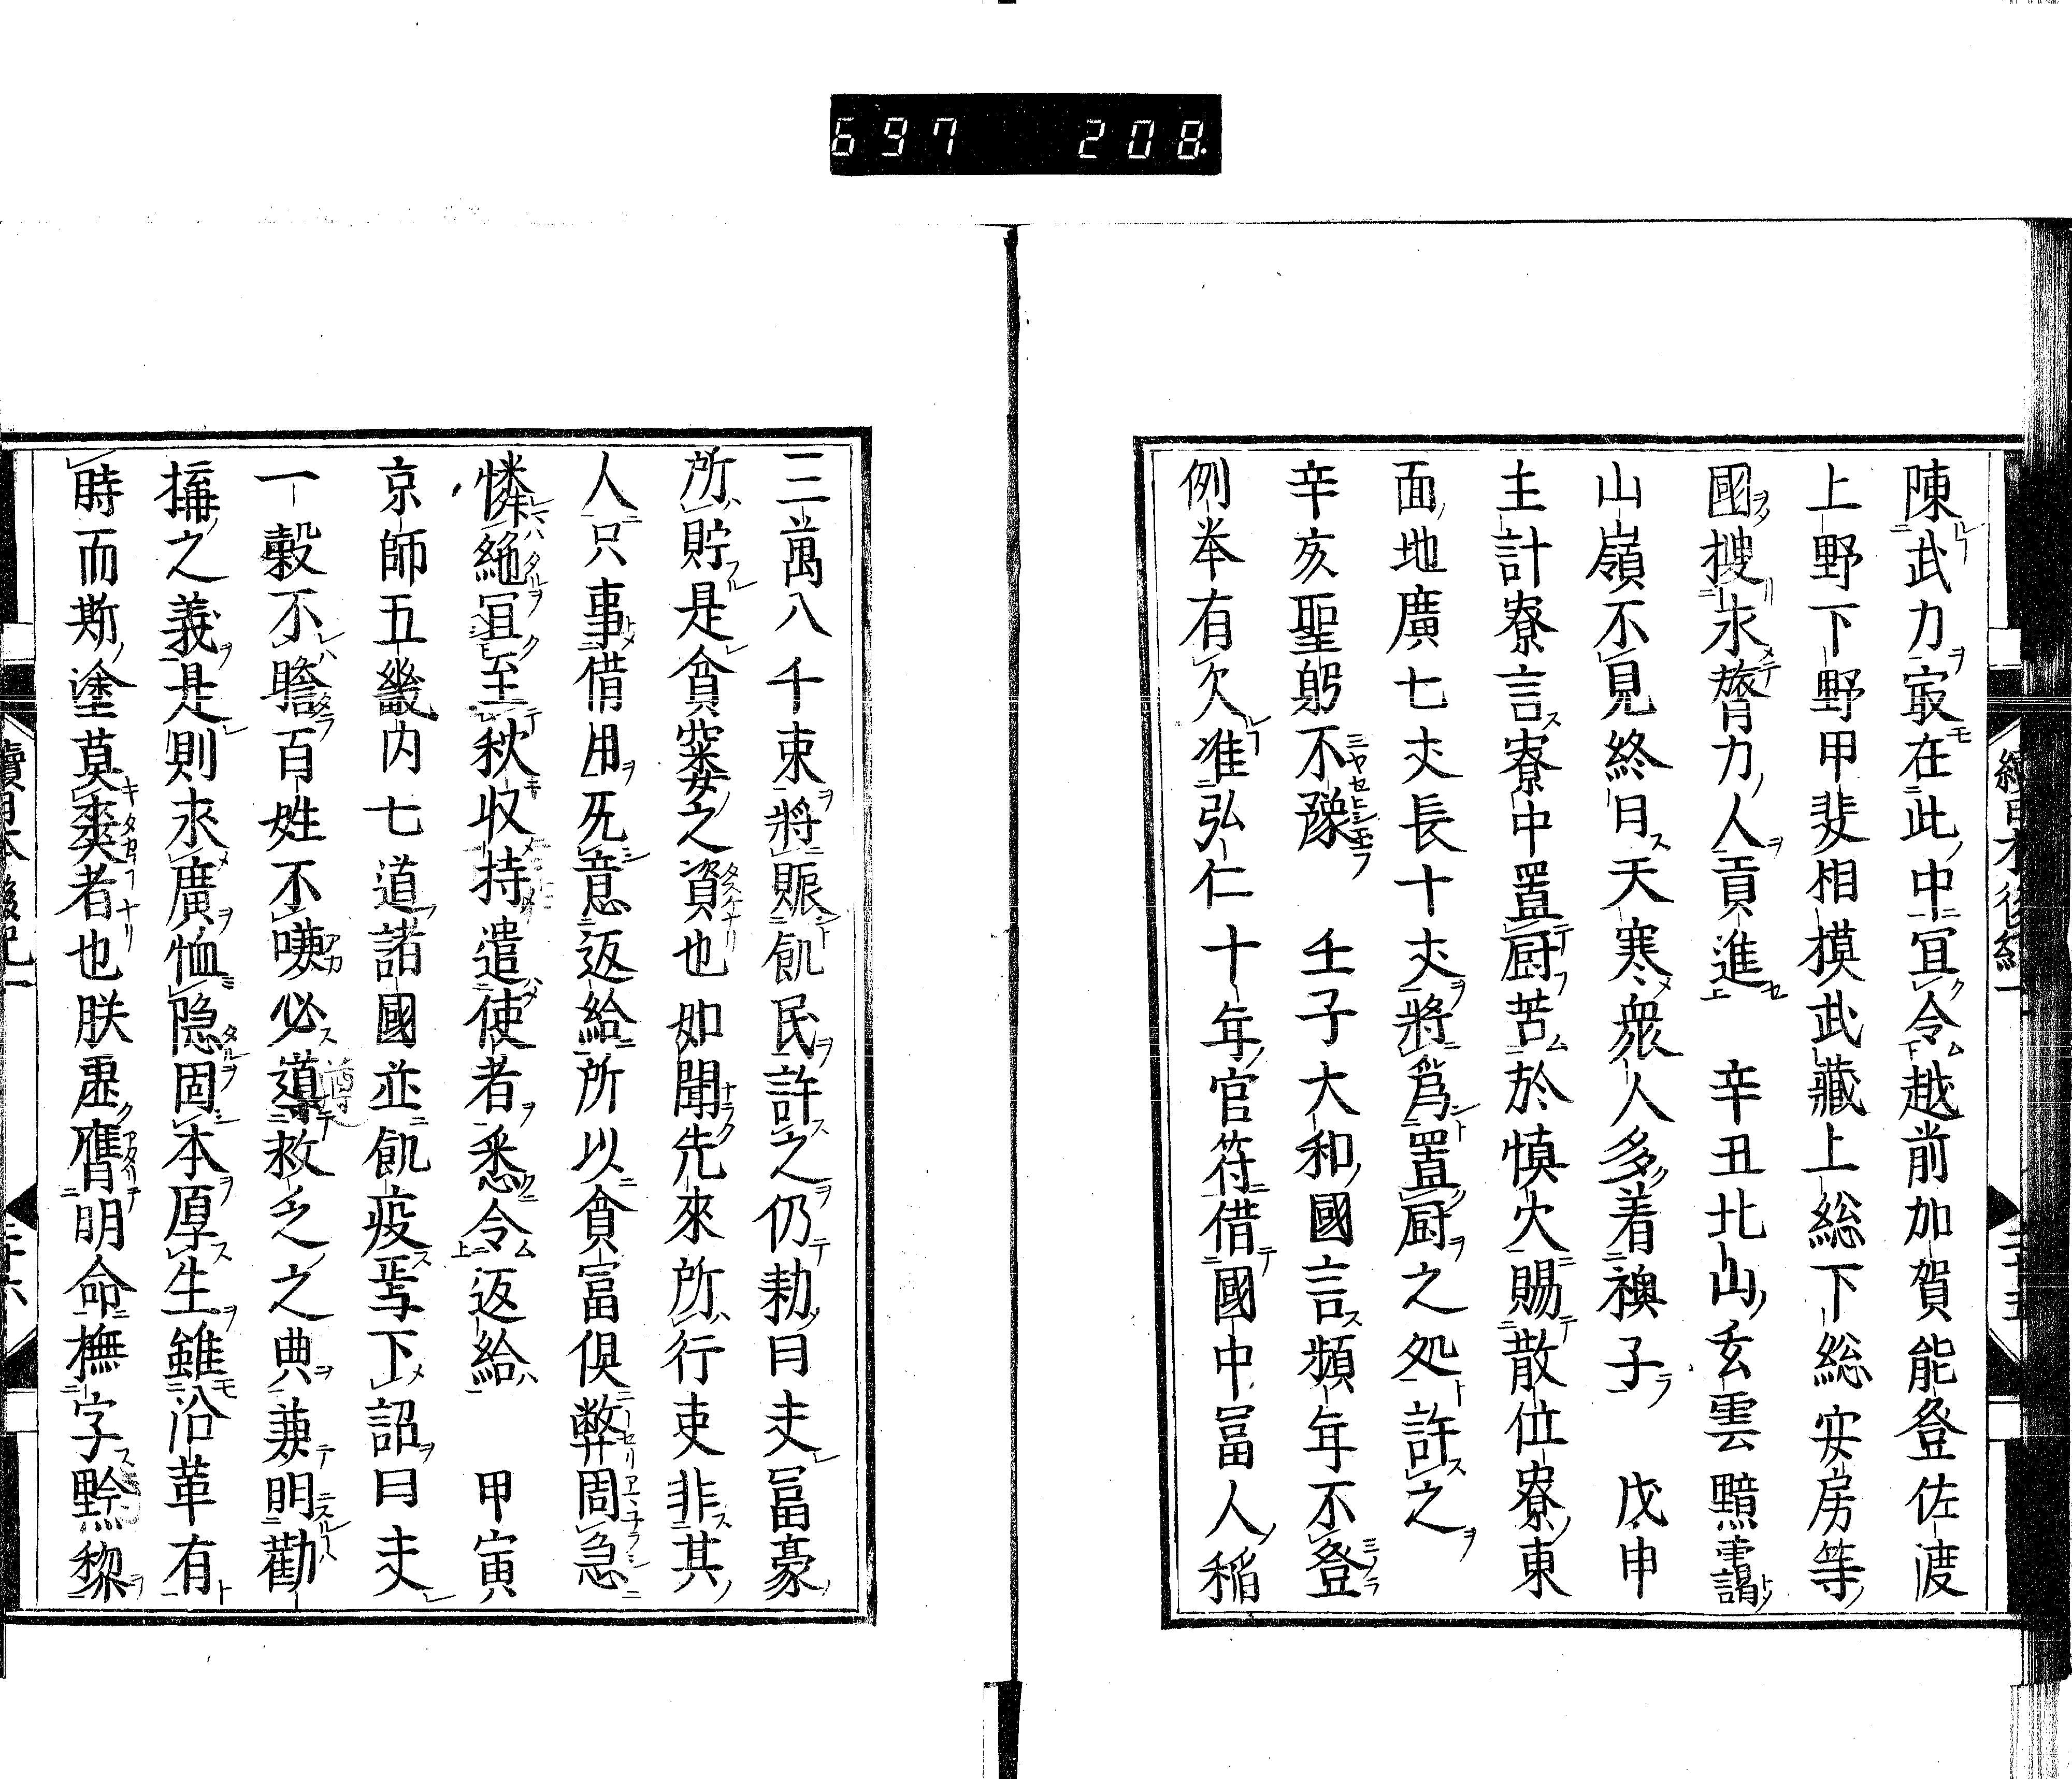 697 208
陳武力㝡在此中冝令越前加賀能登佐渡
上野下野甲斐相摸武藏上総下総安房等
國搜求膂力人貢進　辛丑北山玄雲黯靄
山嶺不見終日天寒衆人多着襖子　戊申
主計寮言寮中置厨苦於慎火賜散位寮東
面地廣七丈長十丈將爲置厨之処許之
辛亥聖躬不豫　壬子大和國言頻年不登
例挙有欠准弘仁十年官符借國中冨人稲
三萬八千束將賑飢民許之仍勅曰夫冨豪
所貯是貪窶之資也如聞先來所行吏非其
人只事借用旡意返給所以貪富俱弊周急
憐絶冝至秋収持遣使者悉令返給　甲寅
京師五畿内七道諸國並飢疫焉下詔曰夫
一穀不贍百姓不嗛必導救乏之典兼明勸
播之義是則求廣恤隐固本厚生雖沿革有
時而斯塗莫爽者也朕虛膺明命撫字黔黎